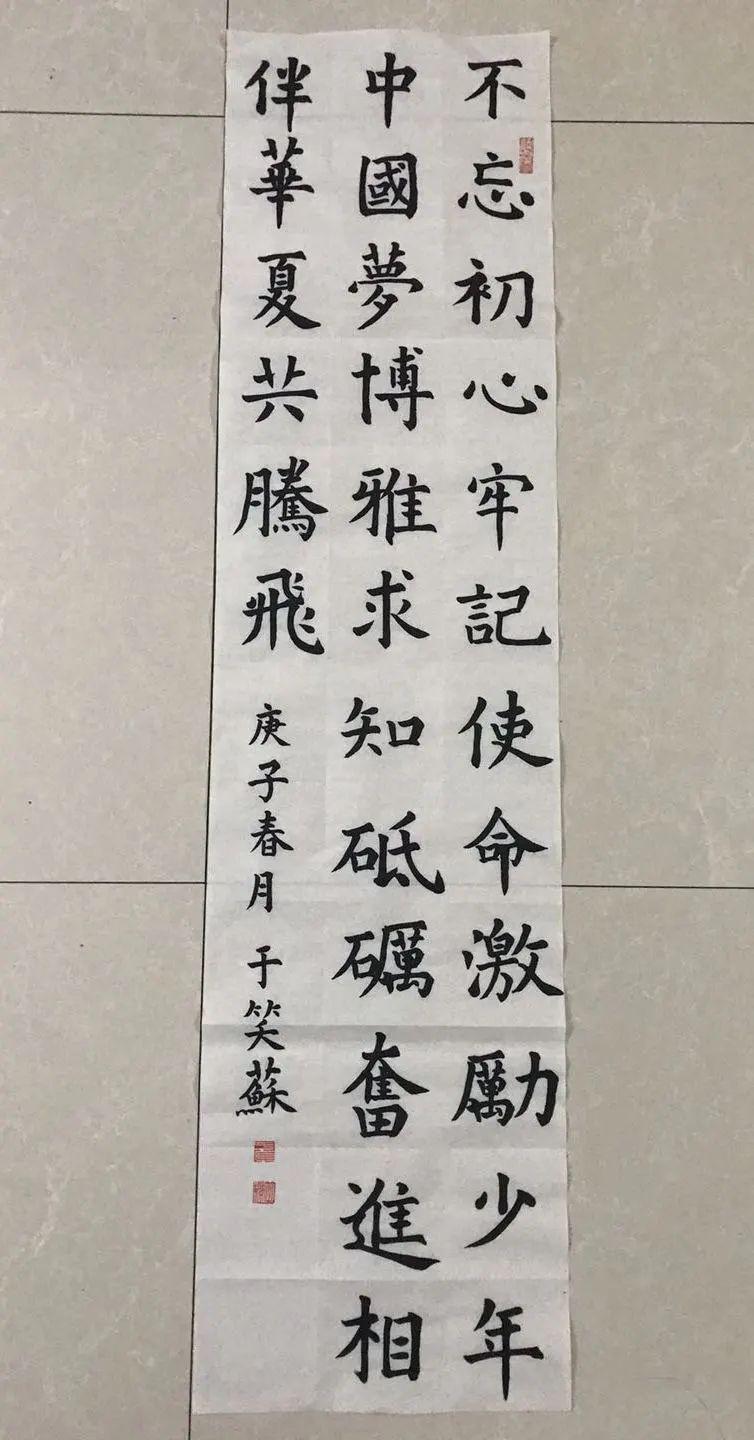 不忘初心牢記使命激勵少年
中國夢博雅求知砥礪奮進相
伴華夏共騰飛
庚子春月 于笑蘇